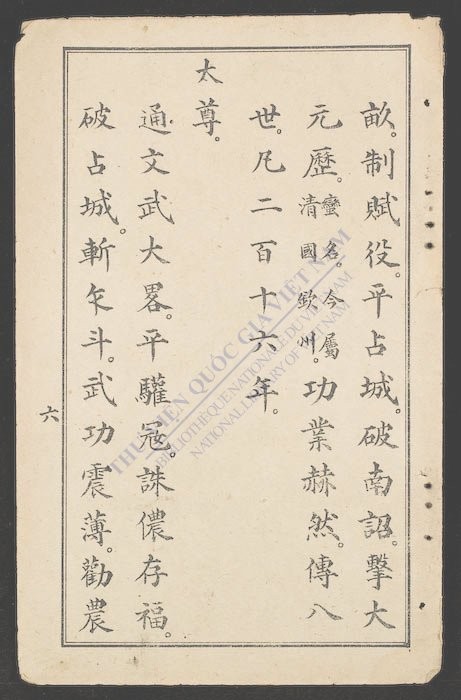 畝。制賦役。平占城。破南詔。擊大
元歷。蠻名。今屬清國欽州。功業赫然。傳八
世。凡二百十六年。
太尊。
通文武大畧。平驩冦。誅儂存福。
破占城。斬乍斗。武功震薄。勸農
六
THƯ VIỆN QUỐC GIA VIỆT NAM
BIBLIOTHÈQUE NATIONALE DU VIETNAM
NATIONAL LIBRARY OF VIETNAM